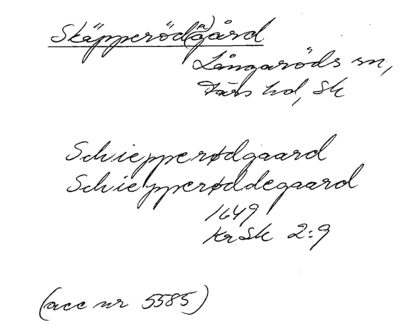 Skäpperöd(a)gård
Långaröds sn,
Färs hd, Sk
Schiepperødgaard
Schiepperøddegaard
1649
KrSk 2:9
(acc nr 5585)